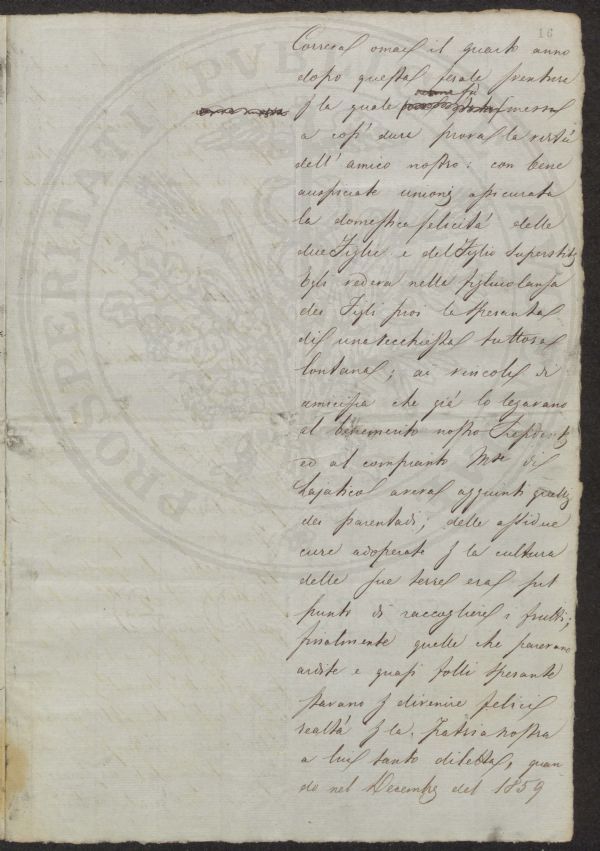 16
Correva omai il quarto anno
dopo questa ferale sventura
p la quale venne fu messa
a così dura prova la virtù
dell' amico nostro: con bene
auspicate unioni assicurata
la domestica felicità delle
due Figlie e del Figlio superstite
Egli vedeva nella figliuolanza
dei Figli suoi la speranza
di una vecchiezza tuttora
lontana; ai vincoli di
amicizia che già lo legavano
al benemerito nostro Presidente
ed al compianto Mse di
Lajatico aveva aggiunti quelli
dei parentadi; delle assidue
cure adoperate p la cultura
delle sue terre era sul
punto di raccogliere i frutti;
finalmente quelle che parevano
ardite e quasi folli speranze
stavano p divenire felici
realtà p la Patria nostra
a lui tanto diletta, quan
do nel Decembre del 1859
PROSPERITATI PVBLICAE